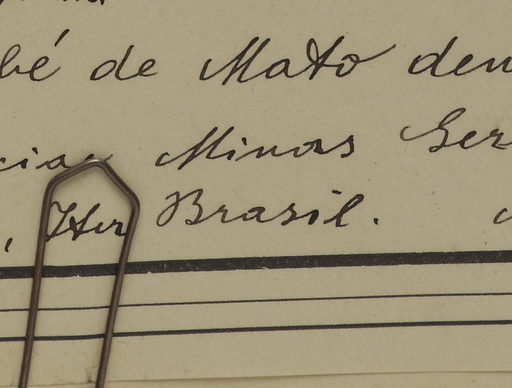 bé de Mato den
cias Minas Ger
, Herr Brasil.